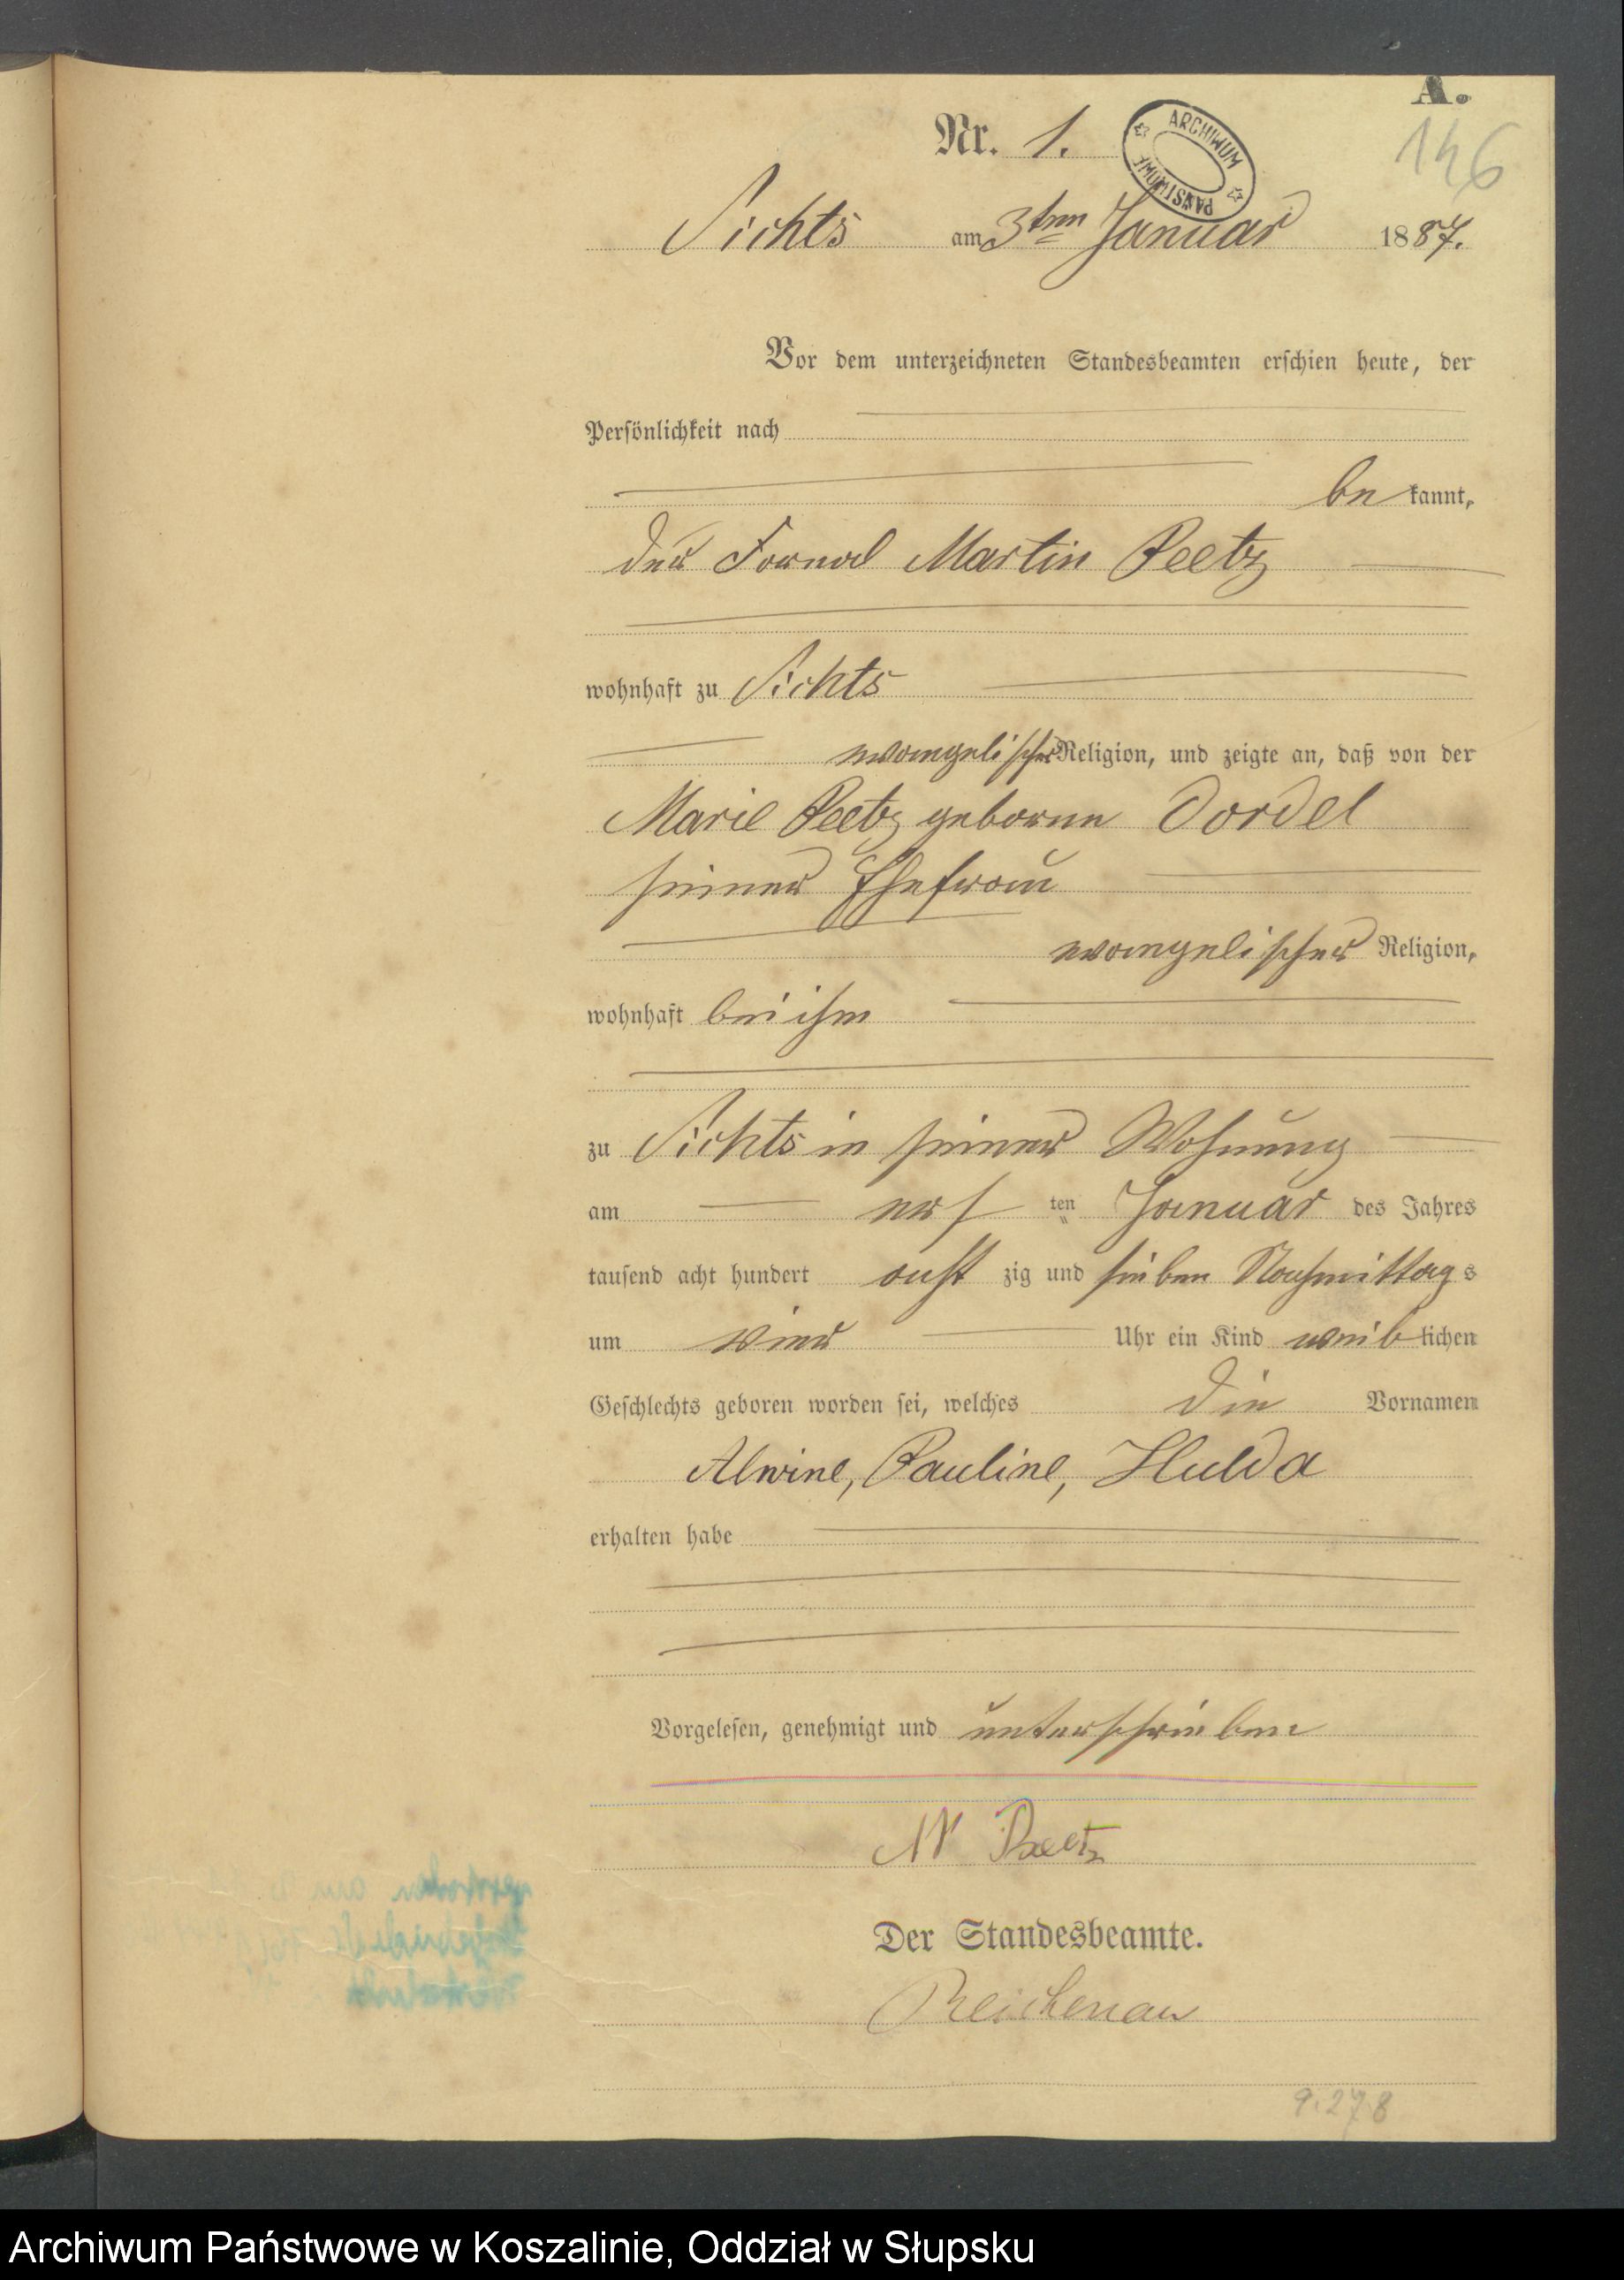 A.
Nr. 1.
ARCHIWUM PAŃSTWOWE
146
Sichts am 3ten Januar 1887.
Vor dem unterzeichneten Standesbeamten erschien heute, der
Persönlichkeit nach
be kannt,
der Fornal Martin Peetz
wohnhaft zu Sichts
evangelischer Religion, und zeigte an, daß von der
Marie Peetz geborne Dordel
seiner Ehefrau
evangelischer Religion,
wohnhaft bei ihm
zu Sichts in seiner Wohnung
am ers ten Januar des Jahres
tausend acht hundert acht zig und sieben Nachmittag s
um vier Uhr ein Kind weib lichen
Geschlechts geboren worden sei, welches die Vornamen
Alwine, Pauline, Hulda
erhalten habe
Vorgelesen, genehmigt und unterschrieben
M Peetz
Der Standesbeamte.
Reichenau
9.278
Archiwum Państwowe w Koszalinie, Oddział w Słupsku